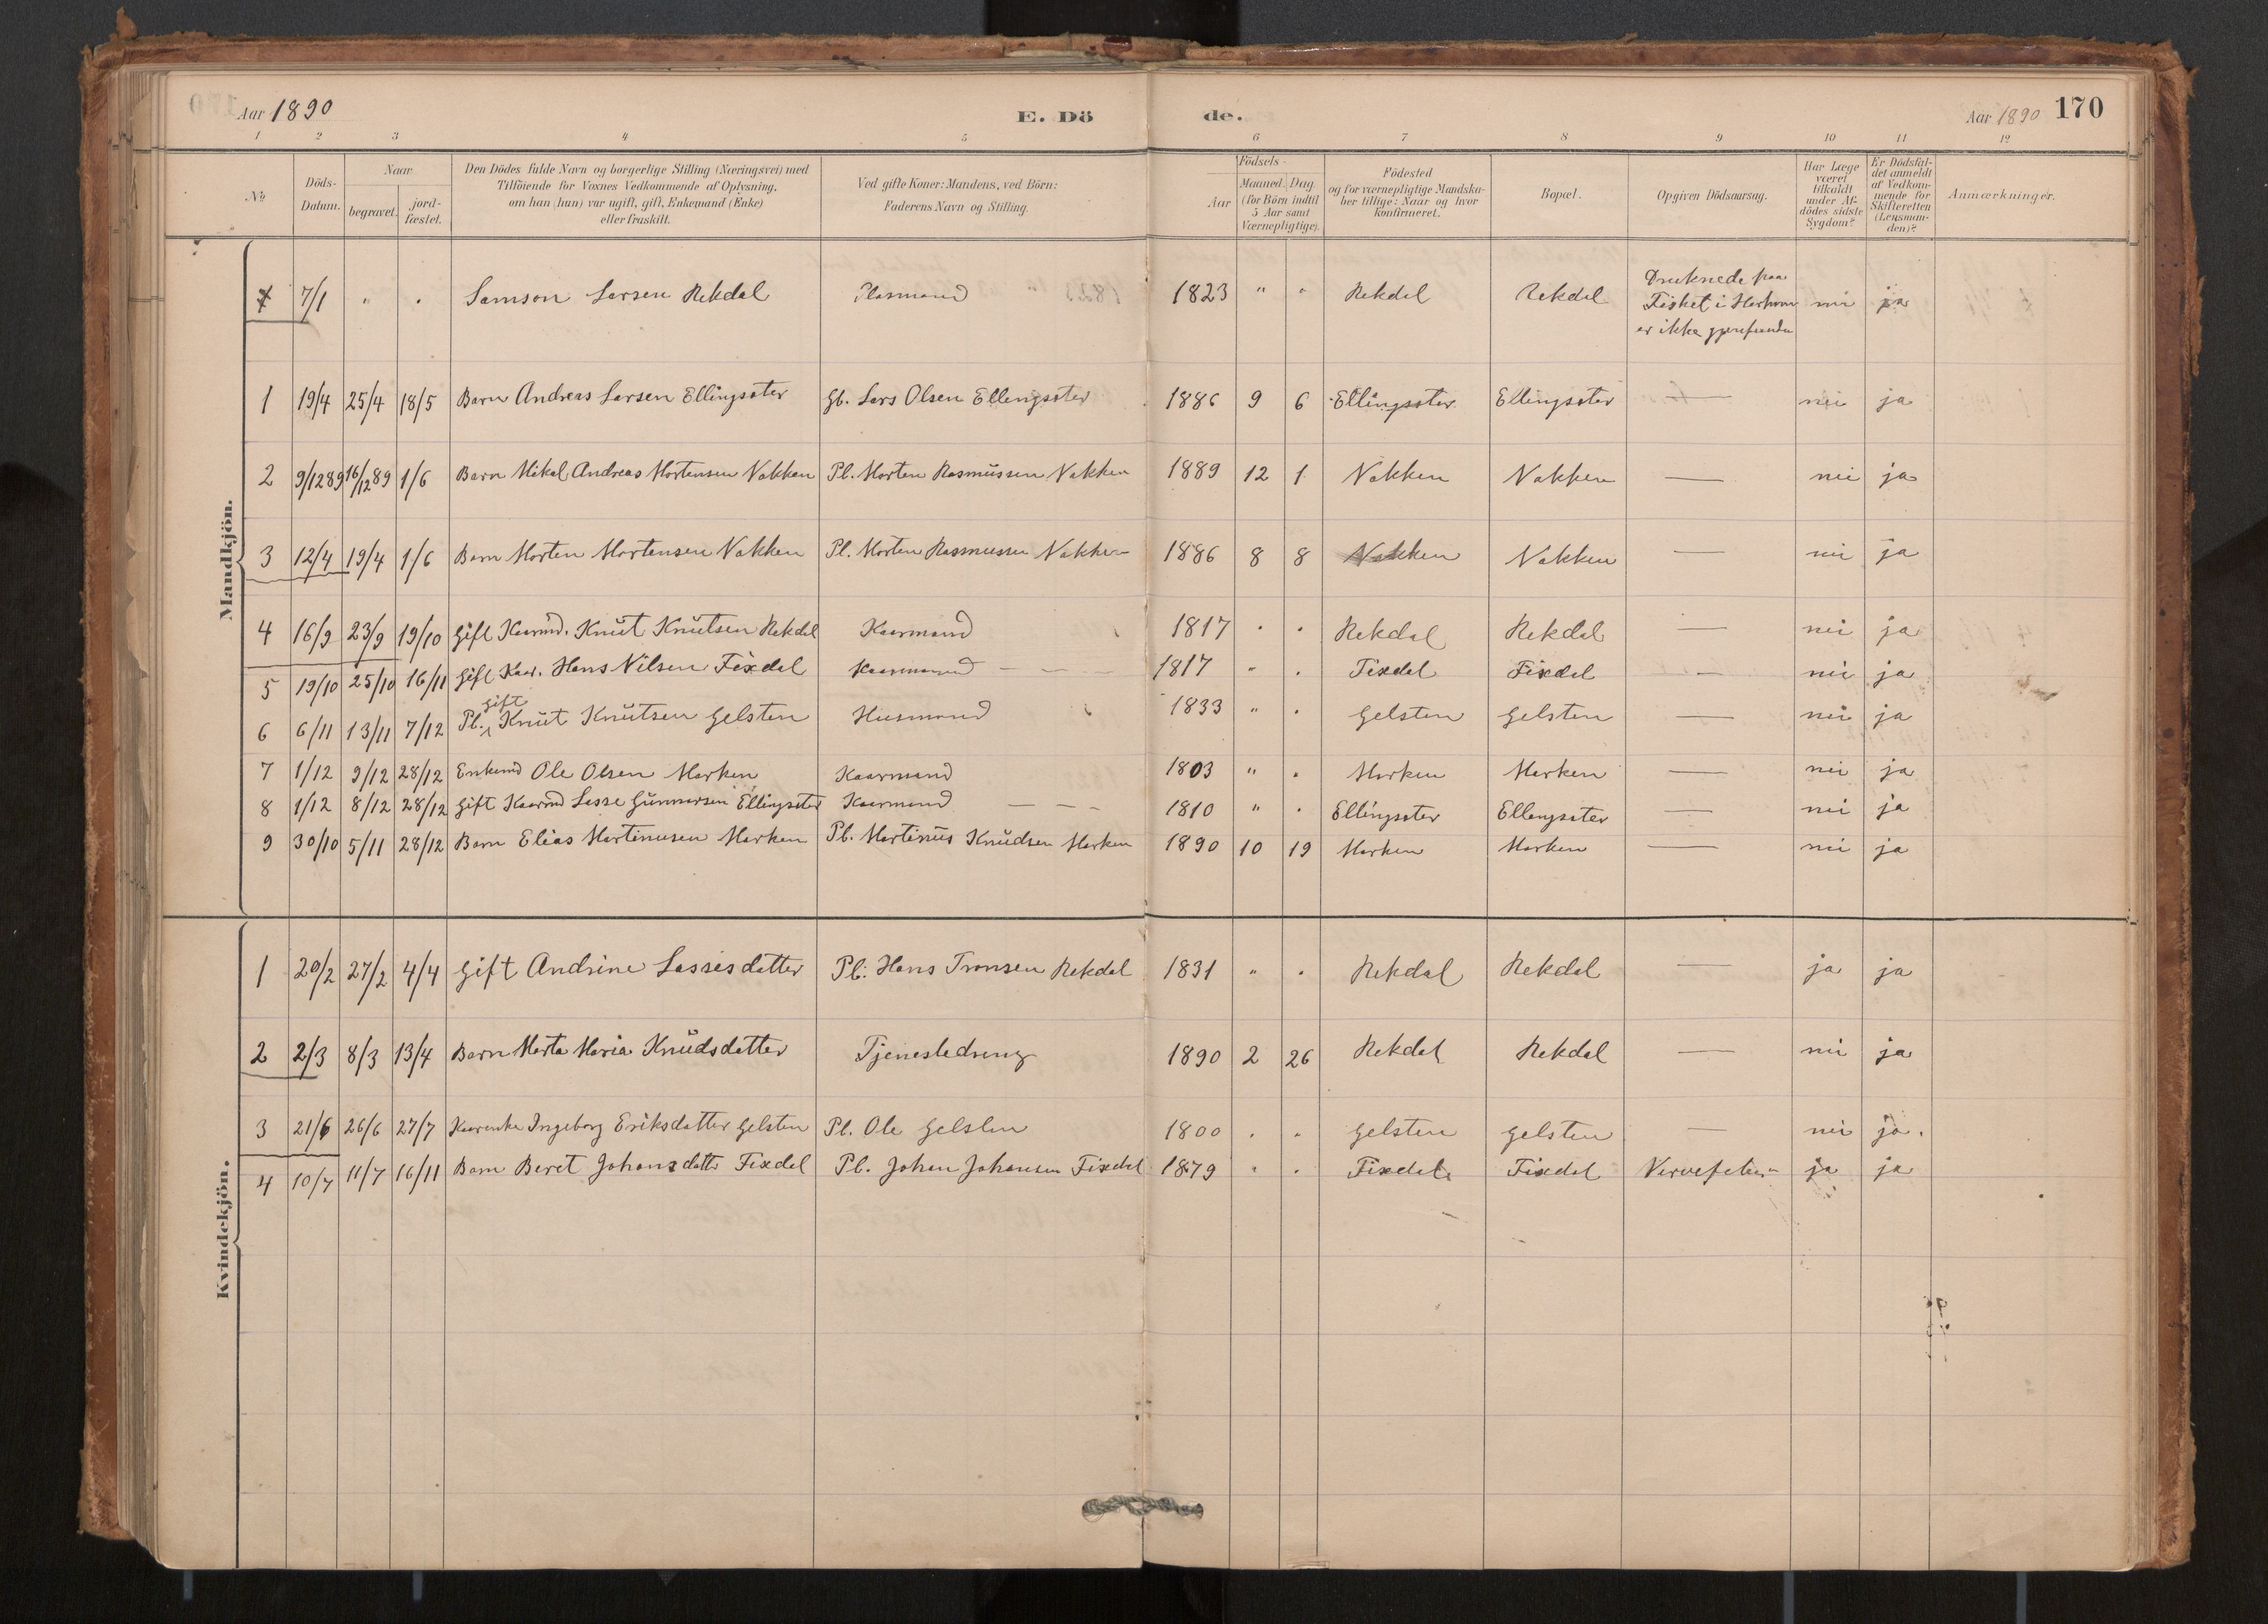 Aar 1890
E. Dö
de.
Aar 1890 170
1 2 3 4 5 6 7 8 9 10 11 12
No
Döds-
Datum.
Naar
begravet.
jord-
fæstet.
Den Dödes fulde Navn og borgerlige Stilling (Næringsvei) med
Tilföiende for Voxnes Vedkommende af Oplysning,
om han (hun) var ugift, gift, Enkemand (Enke)
eller fraskilt.
Ved gifte Koner: Mandens, ved Börn:
Faderens Navn og Stilling.
Födsels-
Aar
Maaned. Dag
(for Börn indtil
5 Aar samt
Værnepligtige).
Födested
og for værnepligtige Mandska-
ber tillige: Naar og hvor
konfirmeret.
Bopæl.
Opgiven Dödsaarsag.
Har Læge
været
tilkaldt
under Af-
dödes sidste
Sygdom?
Er Dödsfal-
det anmeldt
af Vedkom-
mende for
Skifteretten
(Lensman-
den)?
Anmærkninger.
Mandkjön.
7/1 " " Samson Larsen Rekdal Plasmand 1823 " " Rekdal Rekdal Druknede paa
Fisket i
er ikke gjenfunden nei ja
1 19/4 25/4 18/5 Barn Andreas Larsen Ellingsster Gb. Lars Olsen Ellingsster 1886 9 6 Ellingsster Ellingsster — nei ja
2 9/12 89 16/12 89 1/6 Barn Mikal Andreas Mortensen Nakken Pl. Morten Rasmussen Nakken 1889 12 1 Nakken Nakken — nei ja
3 12/4 19/4 1/6 Barn Morten Mortensen Nakken Pl. Morten Rasmussen Nakken 1886 8 8 Nakken Nakken — nei ja
4 16/9 23/9 19/10 Gift Kaarmd. Knut Knutsen Rekdal Kaarmand 1817 " " Rekdal Rekdal — nei ja
5 19/10 25/10 16/11 Gift Kaar. Hans Nilsen Fixdal Kaarmand — — — 1817 " " Fixdal Fixdal — nei ja
6 6/11 13/11 7/12 Pl. gift Knut Knutsen Gelsten Husmand 1833 " " Gelsten Gelsten — nei ja
7 1/12 9/12 28/12 Enkemd Ole Olsen Marken Kaarmand 1803 " " Marken Marken — nei ja
8 1/12 8/12 28/12 Gift Kaarmd Lasse Gunnarsen Ellingsster Kaarmand — — — 1810 " " Ellingsster Ellingsster — nei ja
9 30/10 5/11 28/12 Barn Elias Martinusen Marken Pl. Martinus Knudsen Marken 1890 10 19 Marken Marken — nei ja
Kvindekjön.
1 20/2 27/2 4/4 Gift Andrine Lassesdatter Pl. Hans Tronsen Rekdal 1831 " " Rekdal Rekdal — ja ja
2 2/3 8/3 13/4 Barn Marta Maria Knudsdatter Tjenestedreng 1890 2 26 Rekdal Rekdal — nei ja
3 21/6 26/6 27/7 Kaarenke Ingeborg Eriksdatter Gelsten Pl. Ole Gelsten 1800 " " Gelsten Gelsten — nei ja.
4 10/7 11/7 16/11 Barn Beret Johansdatter Fixdal Pl. Johan Johansen Fixdal 1879 " " Fixdal Fixdal Nervefeber ja ja